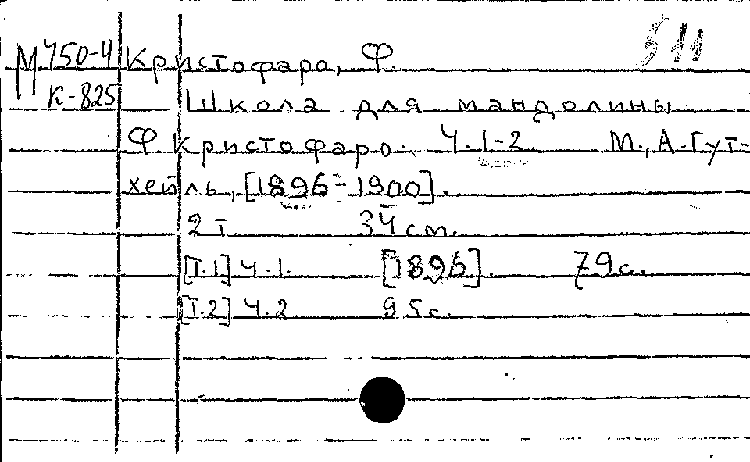 М 750-4 Кристофара, Ф. 511
К-825 Школа для мандолины
Ф Кристофаро. Ч.1-2 М., А.Гут-
хейль, [1896-1900].
2 т 34 см.
[Т.1] Ч.1. [1896]. 79с.
[Т.2] Ч.2 95с.